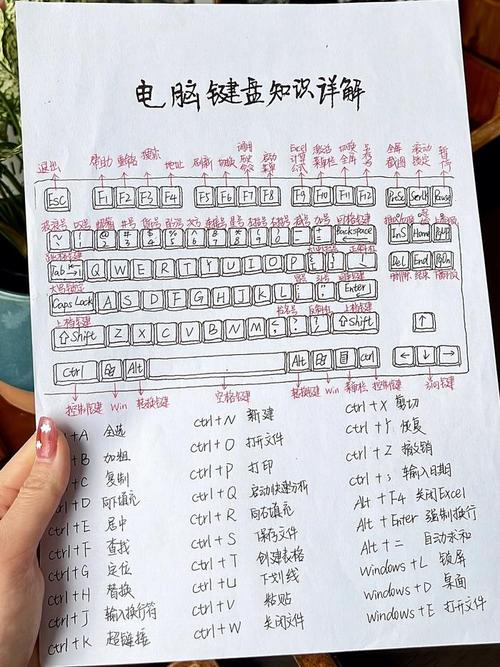 电脑键盘知识详解
退出 帮助 重命名 搜索 地址 刷新 切换 启动菜单 Excel计算公式 激活菜单栏 切换全屏 另存为 全屏截图 滚动锁定 暂停
Esc F1 F2 F3 F4 F5 F6 F7 F8 F9 F10 F11 F12 PrtSc ScrLk Pause
Backspace Ins Home PgUp
Tab Q W E R T Y U I O P Del End PgDn
大写锁定
Caps Lock A S D F G H J K L Enter
上档键
Shift Z X C V B N M Shift ↑
Ctrl Alt Alt Ctrl ← ↓ →
控制键 Win 转换键 空格键 转换键 Win 菜单栏 控制键 方向键
+A 全选
+B 加粗
+C 复制
+D 向下填充
ctrl+E 居中
ctrl+F 查找
ctrl+G 定位
ctrl+H 替换
ctrl+J 输入换行符
ctrl+K 超链接
ctrl+N 新建
ctrl+O 打开文件
ctrl+P 打印
ctrl+Q 启动快速分析
ctrl+R 向右填充
ctrl+S 保存文件
ctrl+T 创建表格
ctrl+U 下划线
ctrl+V 粘贴
ctrl+W 关闭文件
ctrl+X 剪切
ctrl+Y 恢复
ctrl+Z 撤销
ctrl+; 输入日期
Alt+F4 关闭Excel
Alt+Enter 强制换行
Alt+= 自动求和
Windows+L 锁屏
Windows+D 桌面
Windows+E 打开文件